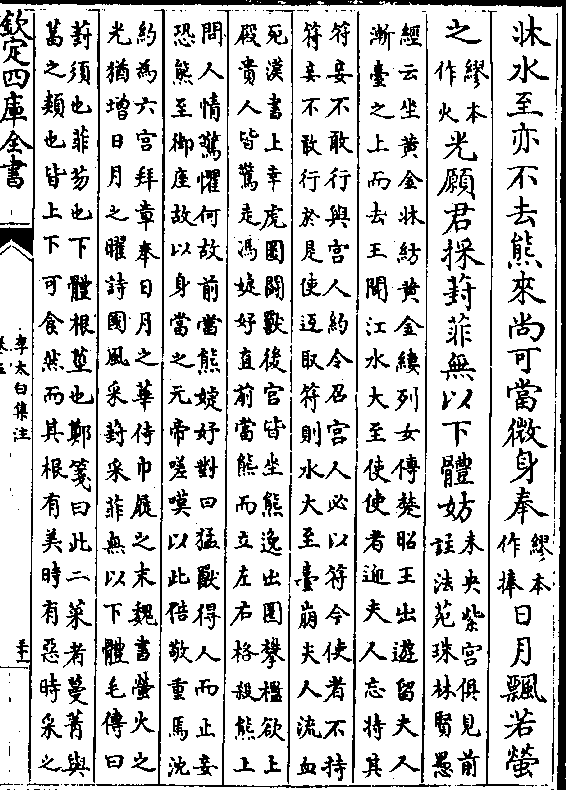 牀水至亦不去熊來尚可當微身奉繆本作捧日月飄若螢
之繆本作火光願君採葑菲無以下體妨未央紫宮俱見前註法苑珠林賢愚
經云坐黃金牀紡黃金縷列女傳楚昭王出遊留夫人
漸臺之上而去王聞江水大至使使者迎夫人忘持其
符妾不敢行與宮人約令召宮人必以符今使者不持
符妾不敢行於是使返取符則水大至臺崩夫人流而
死漢書上幸虎圈鬭獸後宮皆坐熊逸出圈攀檻欲上
殿貴人皆驚走馮婕妤直前當熊而立左右格殺熊上
問人情驚懼何故前當熊婕妤對曰猛獸得人而止妾
恐熊至御座故以身當之元帝嗟嘆以此倍敬重焉沈
約為六宮拜章奉日月之華侍巾屐之末魏書螢火之
光猶增日月之曜詩國風采葑采菲無以下體毛傳曰
葑須也菲芴也下體根莖也鄭箋曰此二菜者蔓菁與
葍之類也皆上下可食然而其根有美時有惡時采之
欽定四庫全書
李太白集注
卷五